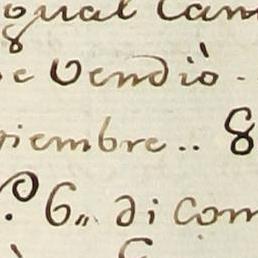 qual Cam
se Vendiò.
tiembre.. 8
P. 6,, di com